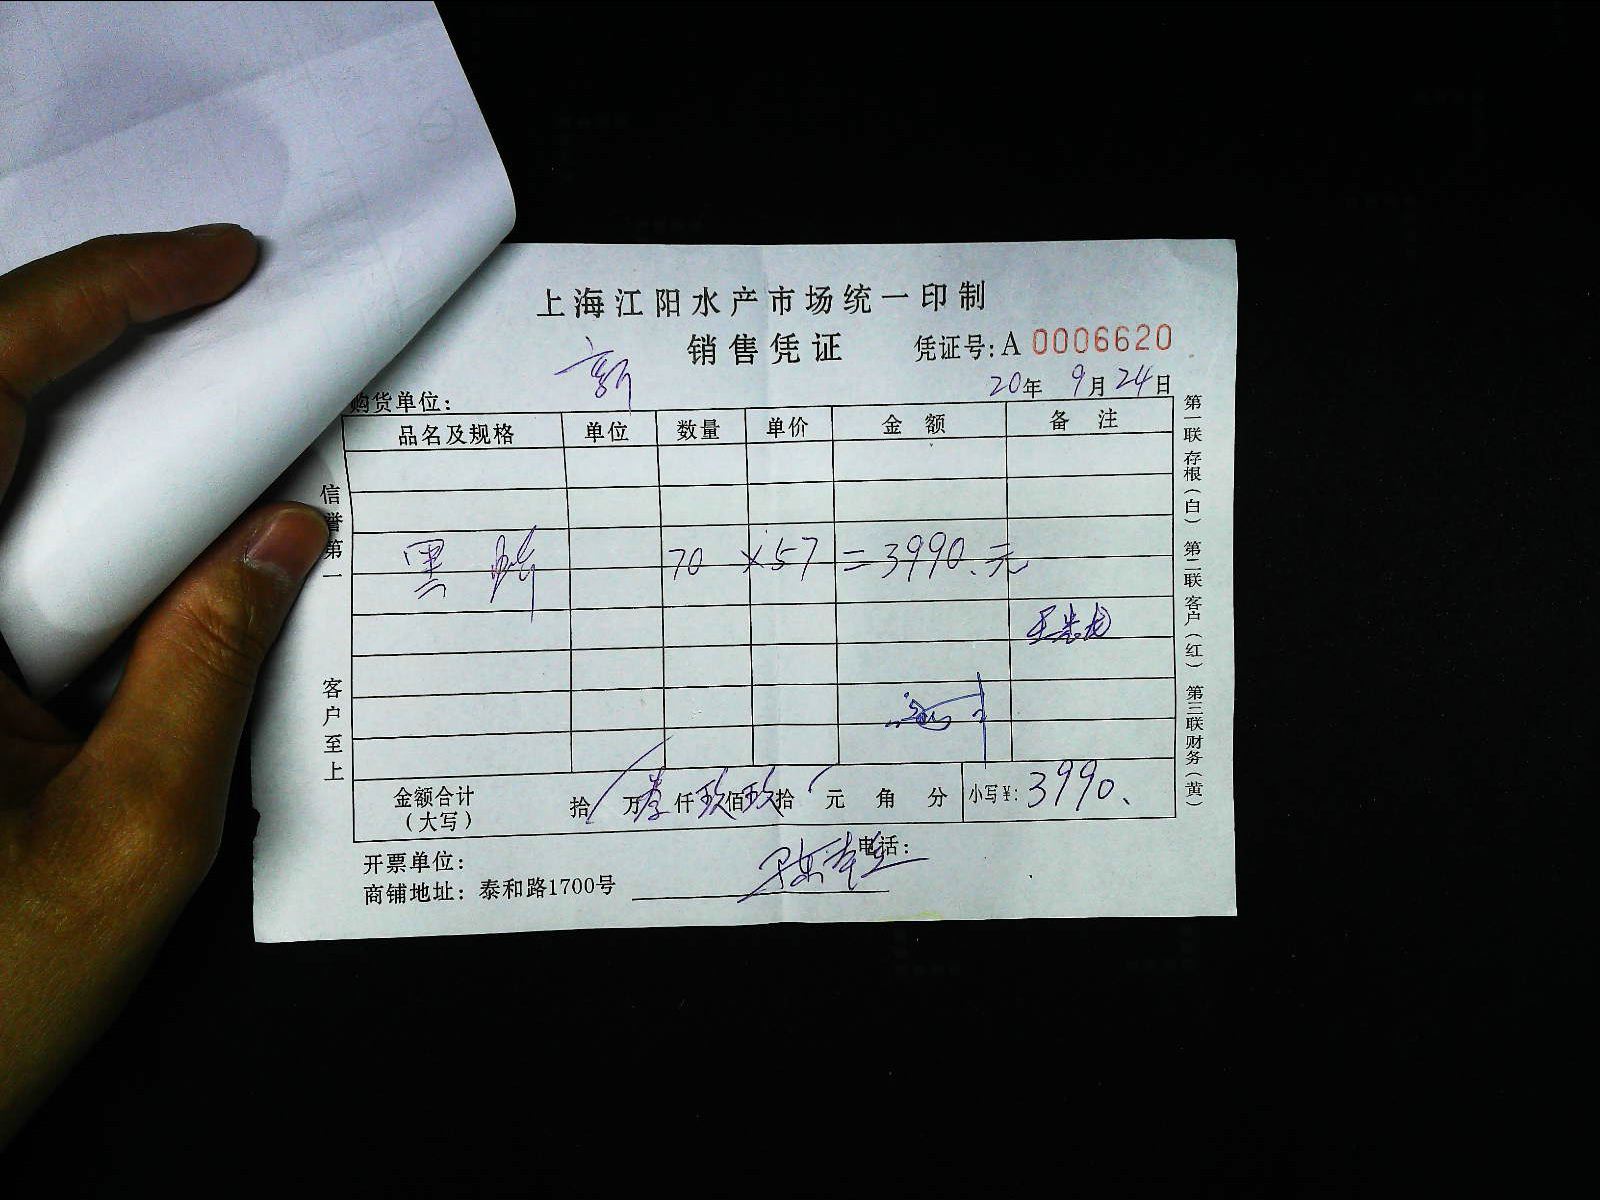 上海江阳水产市场统一印制
销售凭证 凭证号:A 0006620
20年 9月24日
购货单位:
品名及规格 单位 数量 单价 金额 备注
黑 70 ×57 =3990.元
金额合计(大写) 拾 万 叁仟 玖佰 玖拾 元 角 分 小写¥: 3990.
开票单位: 电话:
商铺地址: 泰和路1700号
信誉第一 客户至上
第一联存根(白) 第二联客户(红) 第三联财务(黄)